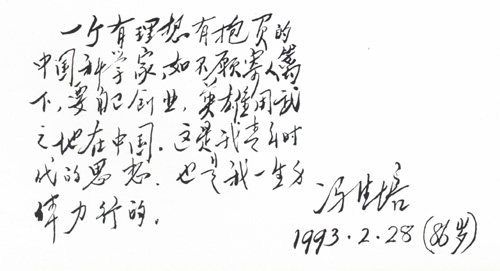 一个有理想有抱负的
中国科学家,如不愿寄人篱
下,要自己创业,英雄用武
之地在中国.这是我青年时
代的思想.也是我一生身
体力行的.
冯
培
1993.2.28(86岁)